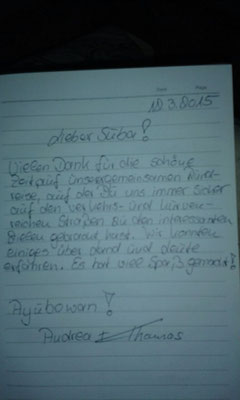 Date Page
18.3.2015
Lieber Suba!
Vielen Dank für die schöne
Zeit auf unserer gemeinsamen Rund-
reise, auf der Du uns immer sicher
auf den verkehrs- und kurven-
reichen Straßen zu den interessanten
Stellen gebracht hast. Wir konnten
einiges über Land und Leute
erfahren. Es hat viel Spaß gemacht!
Ayubowan!
Andrea + Thomas